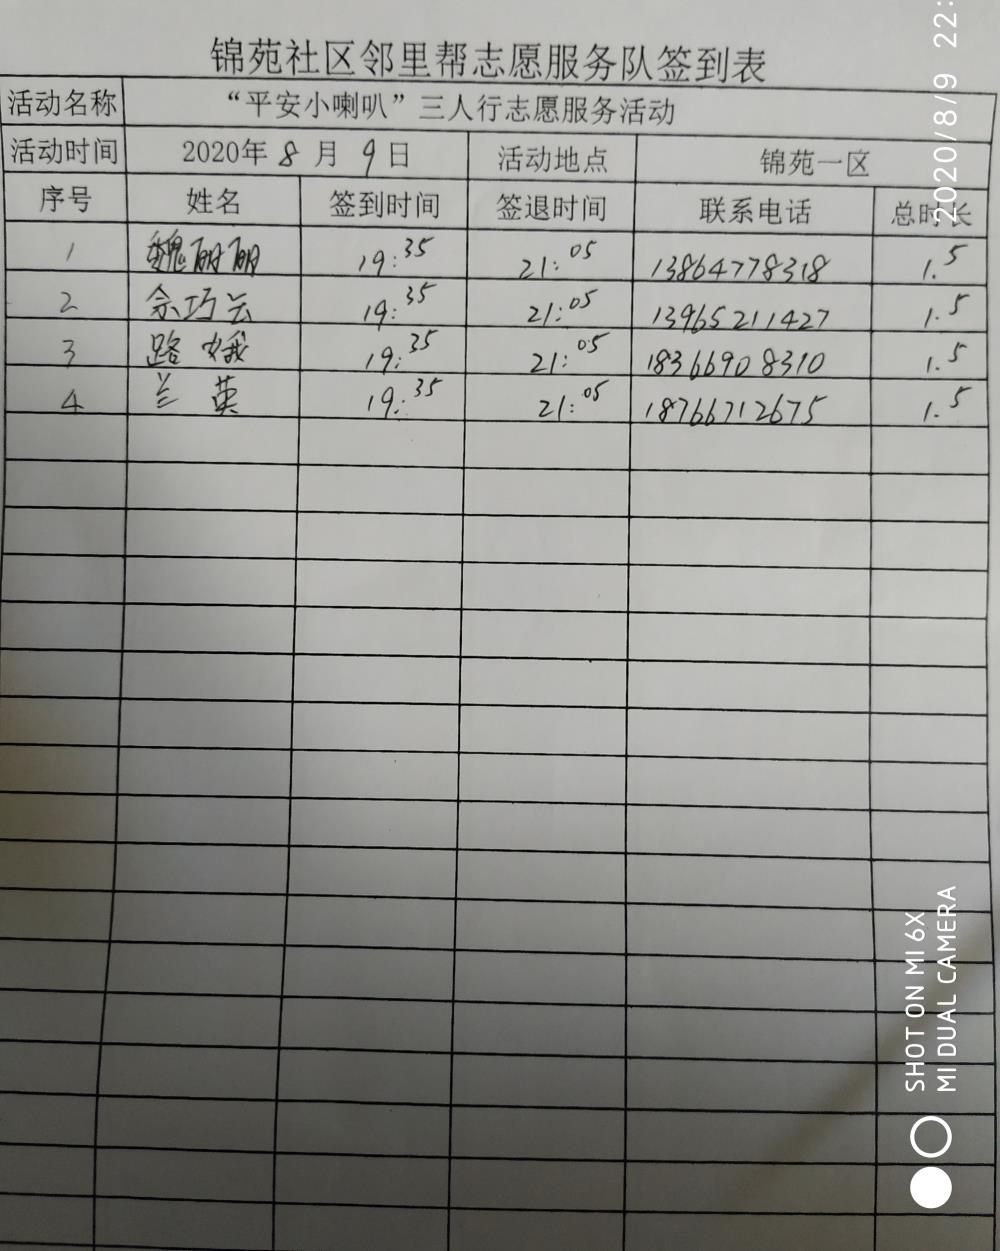 锦苑社区邻里帮志愿服务队签到表
活动名称 “平安小喇叭”三人行志愿服务活动
活动时间 2020年 8 月 9 日 活动地点 锦苑一区
序号 姓名 签到时间 签退时间 联系电话 总时长
1 魏丽丽 19:35 21:05 13864778318 1.5
2 佘巧云 19:35 21:05 13965211427 1.5
3 路娥 19:35 21:05 18366908310 1.5
4 兰英 19:35 21:05 18766712675 1.5
2020/8/9 22:
SHOT ON MI 6X
MI DUAL CAMERA